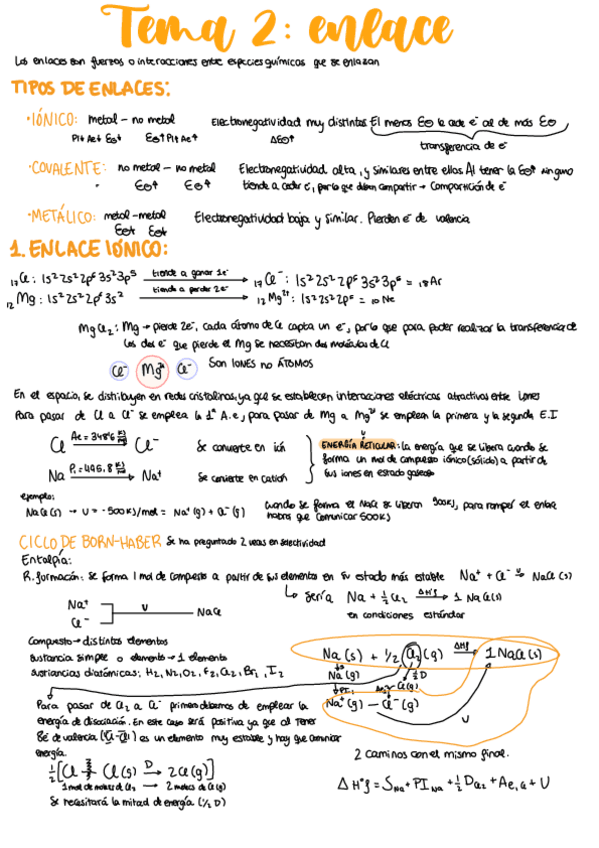 Tema 2: enlace
Los enlaces son fuerzas o interacciones entre especies químicas que se enlazan
TIPOS DE ENLACES:
·IÓNICO: metal – no metal Electronegatividad muy distintas El menos E⊖ le cede e⁻ al de más E⊖
PI↓ Ae↓ E⊖↓ E⊖↑ PI↑ Ae↑ ΔE⊖↑ transferencia de e⁻
·COVALENTE: no metal – no metal Electronegatividad alta, y similares entre ellas Al tener la E⊖↑ ninguno
E⊖↑ E⊖↑ tiende a ceder e⁻, por lo que deben compartir → Compartición de e⁻
·METÁLICO: metal-metal Electronegatividad baja y similar. Pierden e⁻ de valencia
E⊖↓ E⊖↓
1. ENLACE IÓNICO:
₁₇Cl: 1s²2s²2p⁶3s²3p⁵ tiende a ganar 1e⁻ ₁₇Cl⁻: 1s²2s²2p⁶3s²3p⁶ = ₁₈Ar
₁₂Mg: 1s²2s²2p⁶3s² tiende a perder 2e⁻ ₁₂Mg²⁺: 1s²2s²2p⁶ = ₁₀Ne
MgCl₂: Mg → pierde 2e⁻, cada átomo de Cl capta un e⁻, por lo que para poder realizar la transferencia de
los dos e⁻ que pierde el Mg se necesitan dos moléculas de Cl
Cl⁻ Mg²⁺ Cl⁻ Son IONES no ÁTOMOS
En el espacio, se distribuyen en redes cristalinas, ya que se establecen interacciones eléctricas atractivas entre iones
Para pasar de Cl a Cl⁻ se emplea la 1ª A.e, para pasar de Mg a Mg²⁺ se emplean la primera y la segunda E.I
Cl Ae=348'6 KJ/mol Cl⁻ Se convierte en ión
ENERGÍA RETICULAR: la energía que se libera cuando se
forma un mol de compuesto iónico (sólido) a partir de
sus iones en estado gaseoso
Na P.I=495.8 KJ/mol Na⁺ Se convierte en catión
ejemplo:
NaCl(s) → U = -500KJ/mol = Na⁺(g) + Cl⁻(g) cuando se forma el NaCl se liberan 500KJ, para romper el enlace
habrá que comunicar 500KJ
CICLO DE BORN-HABER Se ha preguntado 2 veces en selectividad
Entalpía:
R. formación: se forma 1 mol de compuesto a partir de sus elementos en su estado más estable Na⁺ + Cl⁻ U→ NaCl(s)
↳ sería Na + ½ Cl₂ ΔHf→ 1 NaCl(s)
en condiciones estándar
Na⁺
Cl⁻ U NaCl
Compuesto → distintos elementos
sustancia simple o elemento → 1 elemento
sustancias diatómicas: H₂, N₂, O₂, F₂, Cl₂, Br₂, I₂
Na(s) + 1/2 Cl₂(g) ΔHf→ 1NaCl(s)
↓S ↓½D
Na(g) Cl(g)
↓P.I. Ae
Na⁺(g) – Cl⁻(g)
U
Para pasar de Cl₂ a Cl⁻ primero debemos de emplear la
energía de disociación. En este caso será positiva ya que al tener
8e⁻ de valencia (Cl-Cl) es un elemento muy estable y hay que comunicar
energía.
½[Cl Cl(g) D→ 2Cl(g)]
1 mol de moles de Cl₂ → 2 moles de Cl(g)
Se necesitará la mitad de energía (½ D)
2 caminos con el mismo final.
ΔHºf = S Na + PI Na + ½ D Cl₂ + Ae,Cl + U